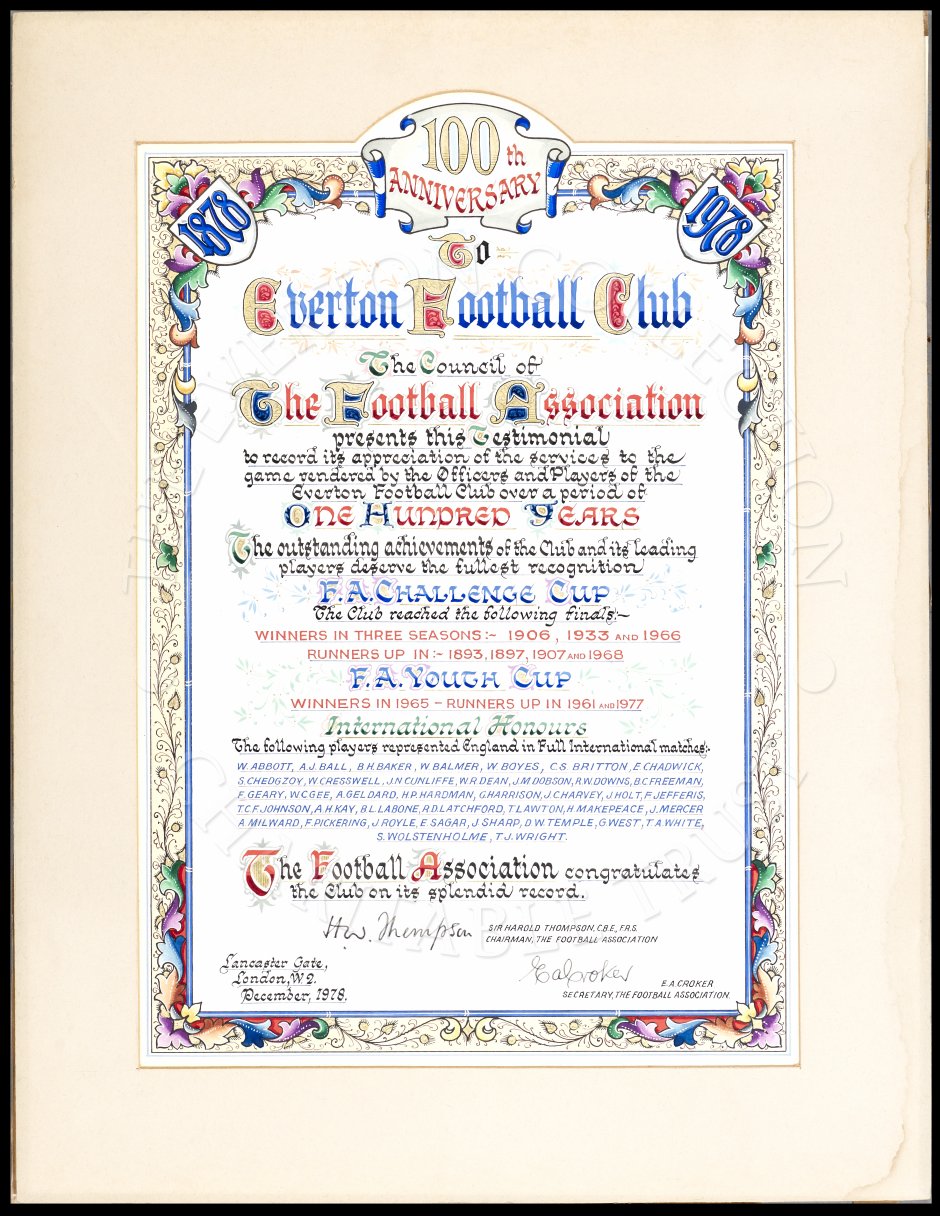 100th
ANNIVERSARY
1878
1978
To
Everton Football Club
The Council of
The Football Association
presents this Testimonial
to record its appreciation of the services to the
game rendered by the Officers and Players of the
Everton Football Club over a period of
ONE HUNDRED YEARS
The outstanding achievements of the Club and its leading
players deserve the fullest recognition
F.A. CHALLENGE CUP
The Club reached the following finals:-
WINNERS IN THREE SEASONS:- 1906, 1933 AND 1966
RUNNERS UP IN:- 1893, 1897, 1907 AND 1968
F.A. YOUTH CUP
WINNERS IN 1965 - RUNNERS UP IN 1961 AND 1977
International Honours
The following players represented England in Full International matches:-
W. ABBOTT, A.J. BALL, B.H. BAKER, W. BALMER, W. BOYES, C.S. BRITTON, E. CHADWICK,
S. CHEDGZOY, W. CRESSWELL, J.N. CUNLIFFE, W.R. DEAN, J.M. DOBSON, R.W. DOWNS, B.C. FREEMAN,
F. GEARY, W.C. GEE, A. GELDARD, H.P. HARDMAN, G. HARRISON, J.C. HARVEY, J. HOLT, F. JEFFERIS,
T.C.F. JOHNSON, A.H. KAY, B.L. LABONE, R.D. LATCHFORD, T. LAWTON, H. MAKEPEACE, J. MERCER
A. MILWARD, F. PICKERING, J. ROYLE, E. SAGAR, J. SHARP, D.W. TEMPLE, G. WEST, T.A. WHITE,
S. WOLSTENHOLME, T.J. WRIGHT.
The Football Association congratulates
the Club on its splendid record.
H.W. Thompson
SIR HAROLD THOMPSON, C.B.E., F.R.S.
CHAIRMAN, THE FOOTBALL ASSOCIATION
Lancaster Gate,
London, W2.
December, 1978.
E A Croker
E.A. CROKER
SECRETARY, THE FOOTBALL ASSOCIATION.
THE EVERTON COLLECTION
CHARITABLE TRUST